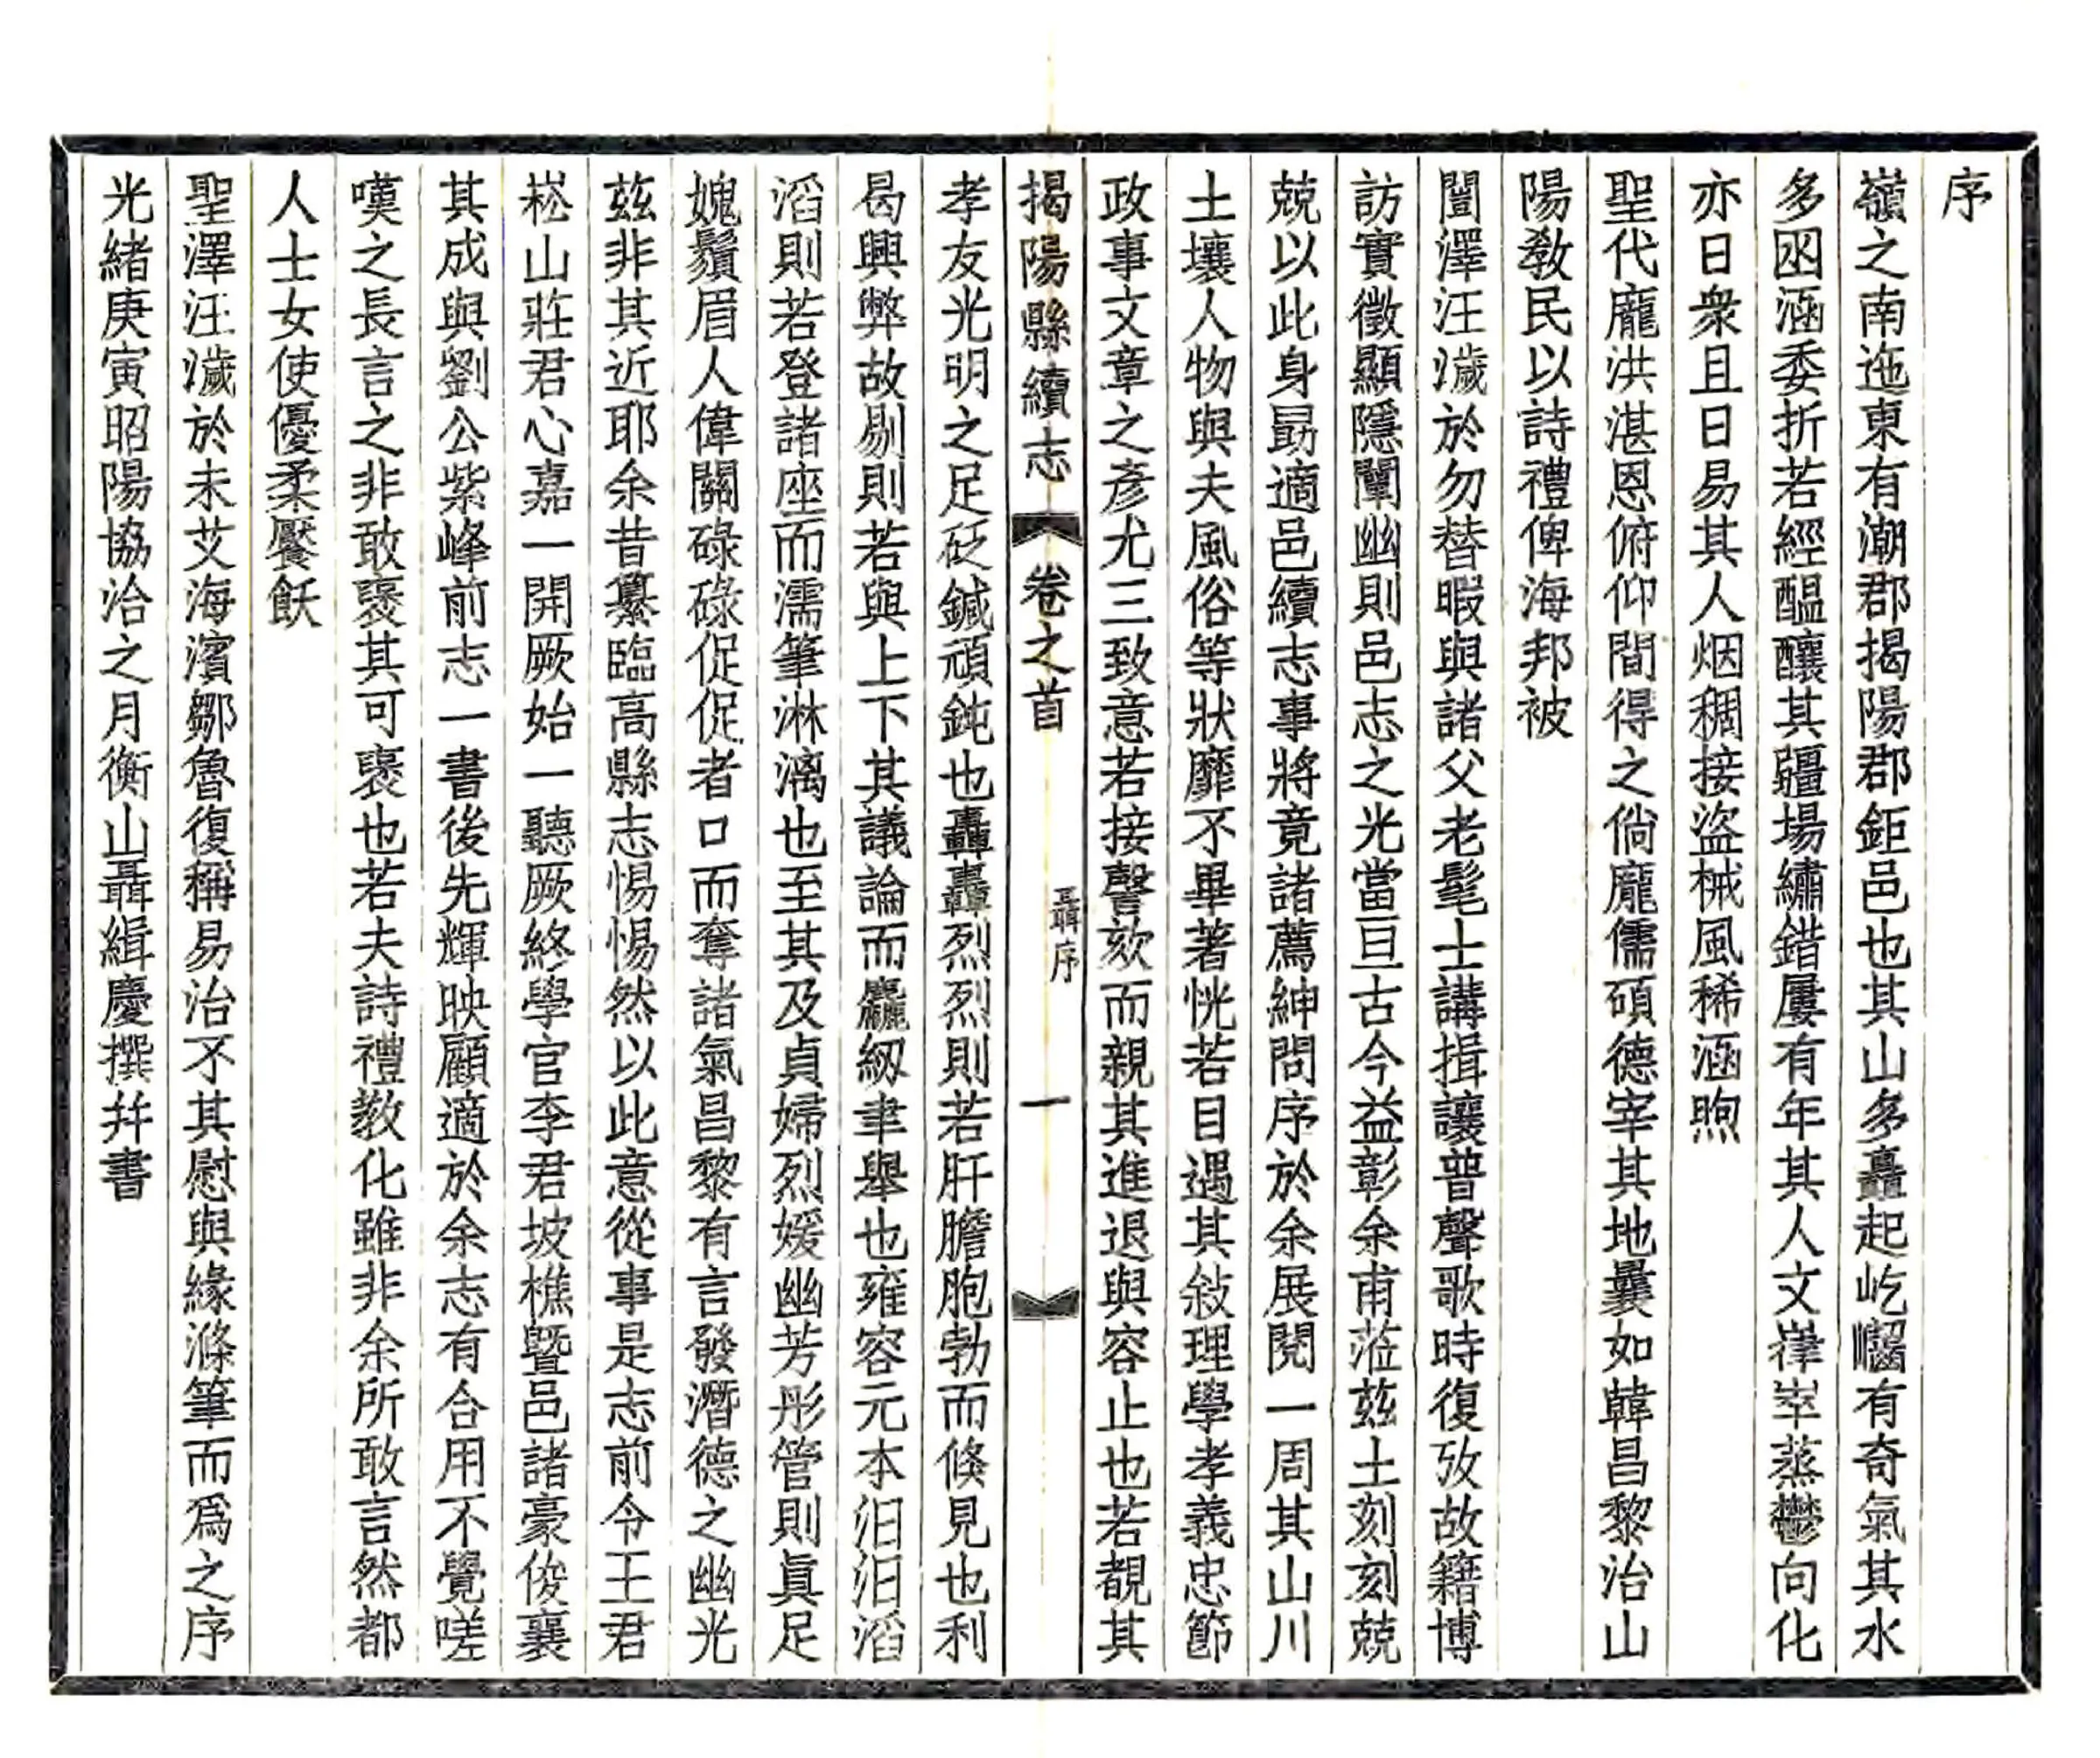 序
嶺之南迤東有潮郡揭陽郡鉅邑也其山多矗起屹㠨有奇氣其水
多函涵委折若經醖釀其疆場繡錯屢有年其人文嵂崒蒸鬱向化
亦日衆且日易其人烟稠接盜械風稀涵煦
聖代龐洪湛恩俯仰間得之倘龐儒碩德宰其地曩如韓昌黎治山
陽教民以詩禮俾海邦被
闓澤汪濊於勿替暇與諸父老髦士講揖讓普聲歌時復攷故籍博
訪實徵顯隱闡幽則邑志之光當亘古今益彰余甫蒞茲土刻刻兢
兢以此身勗適邑續志事將竟諸薦紳問序於余展閱一周其山川
土壤人物與夫風俗等狀靡不畢著恍若目遇其敍理學孝義忠節
政事文章之彥尤三致意若接謦欬而親其進退與容止也若覩其
揭陽縣續志 卷之首 聶序 一
孝友光明之足砭鍼頑鈍也轟轟烈烈則若肝膽胞勃而倏見也利
曷興弊故剔則若與上下其議論而麤紉聿舉也雍容元本汨汨滔
滔則若登諸座而濡筆淋漓也至其及貞婦烈媛幽芳彤管則眞足
媿鬚眉人偉關碌碌促促者口而奪諸氣昌黎有言發潛德之幽光
茲非其近耶余昔纂臨高縣志惕惕然以此意從事是志前令王君
崧山莊君心嘉一開厥始一聽厥終學官李君坡樵曁邑諸豪俊襄
其成與劉公紫峰前志一書後先輝映顧適於余志有合用不覺嗟
嘆之長言之非敢褒其可褒也若夫詩禮敎化雖非余所敢言然都
人士女使優柔饜飫
聖澤汪濊於未艾海濱鄒魯復稱易治不其慰與緣滌筆而爲之序
光緒庚寅昭陽協洽之月衡山聶緝慶撰幷書